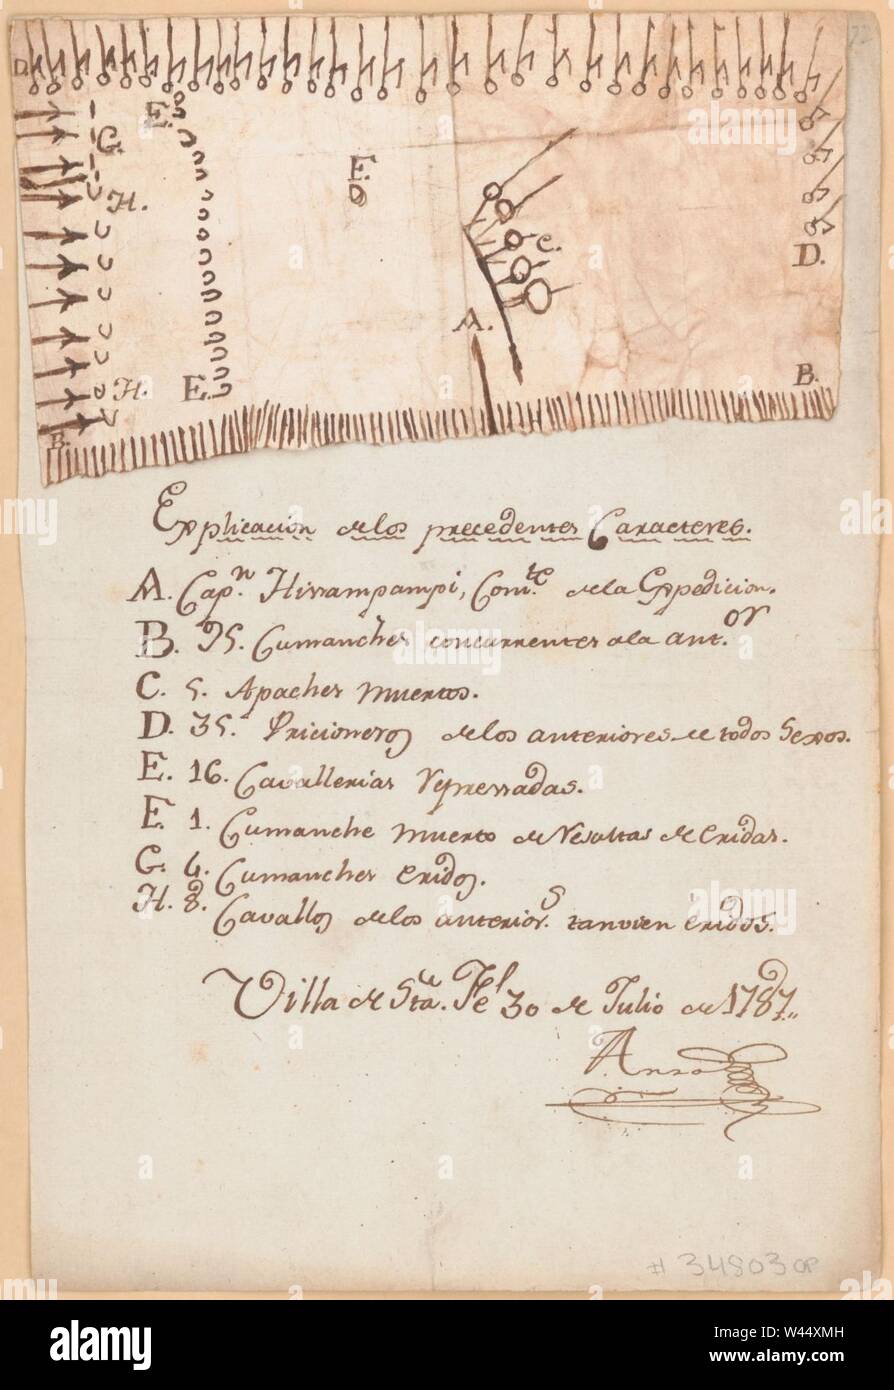 D.
E.
G.
H.
E.
C.
D.
A.
H.
E.
B.
B.
Explicacion de los precedentes Caracteres.
A. Capn. Hisampampi, Comte. de la Expedicion.
B. 75. Cumanches concurrentes ala antor.
C. 5. Apaches muertos.
D. 35. Pricioneros de los anteriores de todos Sexos.
E. 16. Cavallerias represadas.
F. 1. Cumanche muerto de resultas de eridas.
G. 4. Cumanches eridos.
H. 8. Cavallos de los anteriors. tanvien eridos.
Villa de Sta. Fe 30 de Julio de 1787,,
Anza
# 34503 OP
alamy
Image ID: W44XMH
www.alamy.com